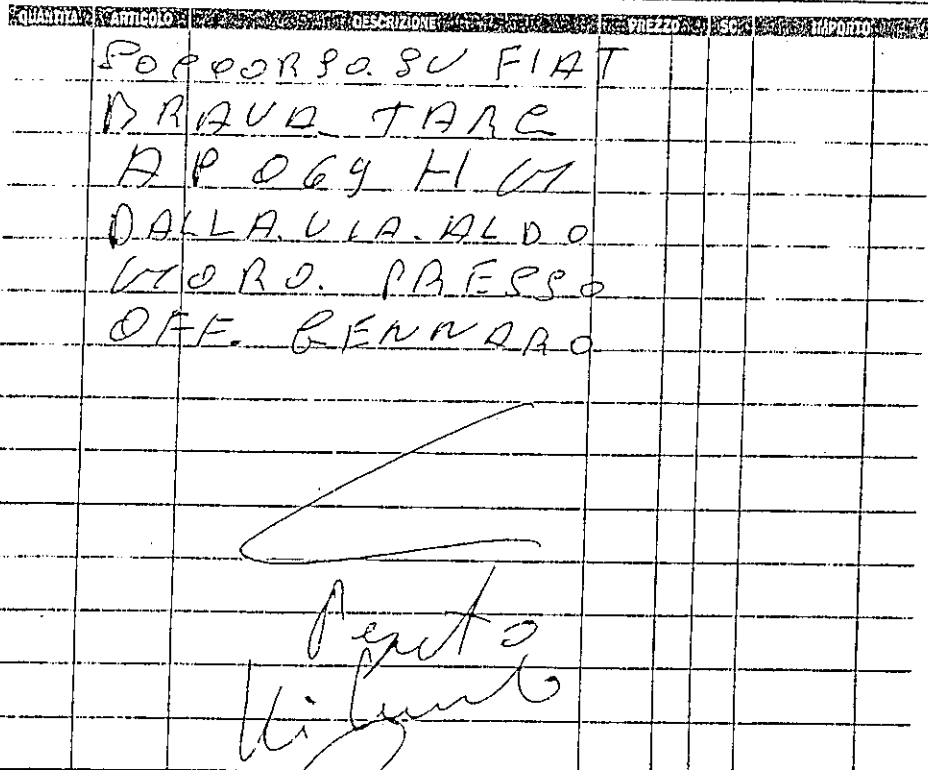 QUANTITÀ ARTICOLO DESCRIZIONE PREZZO SC. IMPORTO
SOCCORSO. SU FIAT
BRAVA TARG
AP 069 HM
DALLA. VIA. ALDO
MORO. PRESSO
OFF. GENNARO